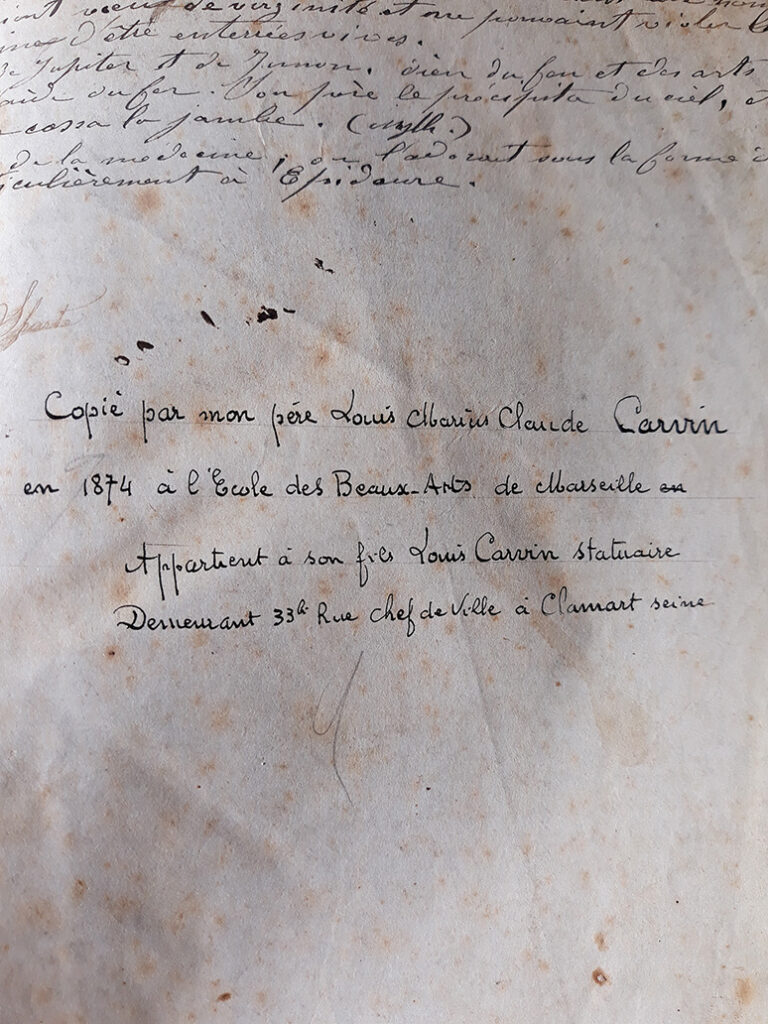 vœu de virginité et ne pouvaient violer
d'être enterrées vives.
de Jupiter et de Junon, dieu du feu et des arts
du fer. Son père le précipita du ciel,
cassa la jambe. (myth.)
de la médecine; on l'adorait sous la forme
culièrement à Epidaure.
Copié par mon père Louis Marius Claude Carvin
en 1874 à l'Ecole des Beaux-Arts de Marseille en
Appartient à son fils Louis Carvin statuaire
Demeurant 33bis Rue chef de Ville à Clamart seine